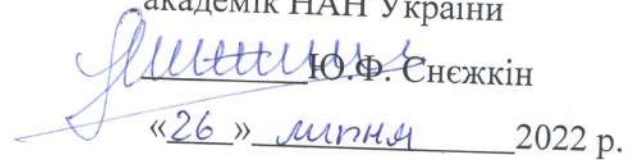 академік НАН України
Ю.Ф. Снєжкін
«26» липня 2022 р.